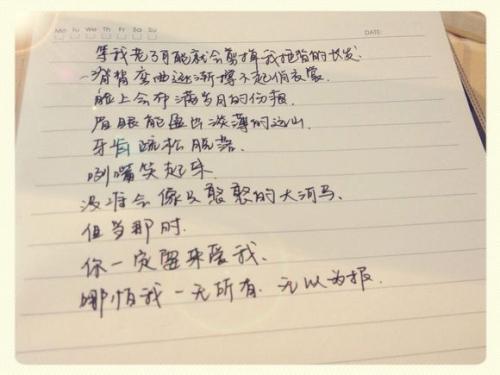 Mo Tu We Th Fr Sa Su
DATE:
等我老了可能就会剪掉我拖背的长发.
脊背弯曲逐渐撑不起俏衣裳.
脸上会布满岁月的伤痕.
眉眼能画出淡薄的远山.
牙齿疏松脱落.
咧嘴笑起来
没准会像只憨憨的大河马.
但当那时.
你一定要来爱我.
哪怕我一无所有.无以为报.